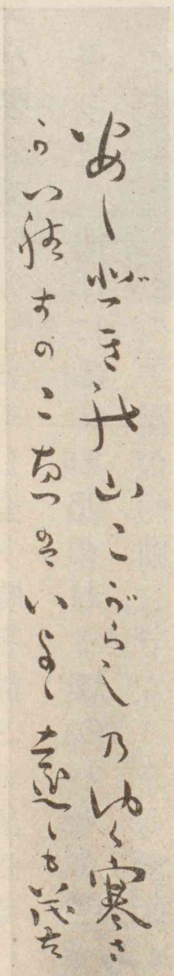 あしびきの山こがらし乃ゆく寒さ
からすのこゑはいよよ遠しも 茂吉